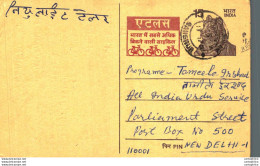 न्यु लाईट टेलर
एटलस
भारत में सबसे अधिक
बिकने वाली साइकिल
भारत
INDIA
Programe - Tameele Irshad
All India Urdu Service
Parliament Street
Post Box No 500
पिन PIN NEW DELHI-1
110001